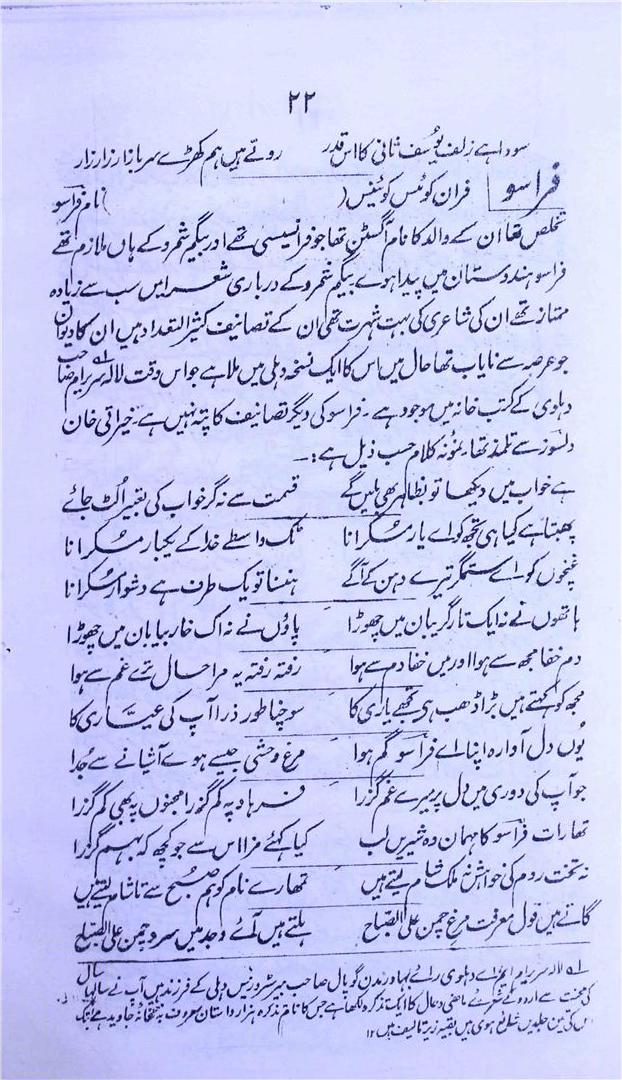 ۲۲
سودا ہے زلف یوسف ثانی کا اس قدر روتے ہیں ہم کھڑے سر بازار زار زار
فراسو فران کوئس کوئینس( )نام فراسو
تخلص تھا ان کے والد کا نام آگسٹن تھا جو فرانسیسی تھے اور بیگم شمرو کے ہاں ملازم تھے
فراسو ہندوستان میں پیدا ہوے بیگم شمرو کے درباری شعرا میں سب سے زیادہ
ممتاز تھے ان کی شاعری کی بہت شہرت تھی ان کے تصانیف کثیر التعداد ہیں ان کا دیوان
جو عرصہ سے نایاب تھا حال میں اس کا ایک نسخہ دہلی میں ملا ہے جو اس وقت لالہ سریرام صاحب
دہلوی کے کتب خانہ میں موجود ہے۔ فراسو کی دیگر تصانیف کا پتہ نہیں ہے۔ خیراتی خان
دلسوز سے تلمذ تھا۔ نمونہ کلام حسب ذیل ہے:۔
ہے خواب میں دیکھا تو بظاہر بھی ملیں گے قسمت سے نہ گر خواب کی تعبیر الٹ جائے
پھبتا ہے کیا ہی تجھ کو اے یار مسکرانا تک واسطے خدا کے یکبار مسکرانا
غنچوں کو اے ستمگر تیرے دہن کے آگے ہنسنا تو یک طرف ہے دشوار مسکرانا
ہاتھوں نے نہ ایک تار گریبان میں چھوڑا پاؤں نے نہ اک خار بیابان میں چھوڑا
دم خفا مجھ سے ہوا اور میں خفا دم سے ہوا رفتہ رفتہ یہ مرا حال ترے غم سے ہوا
مجھ کو کہتے ہیں بڑا ڈھب ہی تجھے یاری کا سوچنا طور ذرا آپ کی عیاری کا
یوں دل آوارہ اپنا اے فراسو گم ہوا مرغ وحشی جیسے ہوے آشیانے سے جدا
جو آپ کی دوری میں دل پر میرے غم گزرا فرہاد پہ کم گزرا مجنوں پہ بھی کم گزرا
تھا رات فراسو کا مہمان وہ شیریں لب کیا کہئے مزا اس سے جو کچھ کہ بہم گزرا
نہ تخت روم کی خواہش نہ ملک شام لیتے ہیں تمھارے نام کو ہم صبح سے تا شام لیتے ہیں
گاتے ہیں قول معرفت مرغ چمن علی الصباح ہلتے ہیں آے وجد میں سرو چمن علی الصباح
لہ لالہ سریرام ایم اے دہلوی رائے بہادر مدن گوپال صاحب بیرسٹر و رئیس دہلی کے فرزند ہیں آپ نے سالہا سال
کی محنت سے اردو کے شعرائے ماضی و حال کا ایک تذکرہ لکھا ہے جس کا نام تذکرہ ہزار داستان معروف بہ خمخانہ جاوید ہے
اس کی تین جلدیں شائع ہوی ہیں بقیہ زیر تالیف ہیں ۱۲